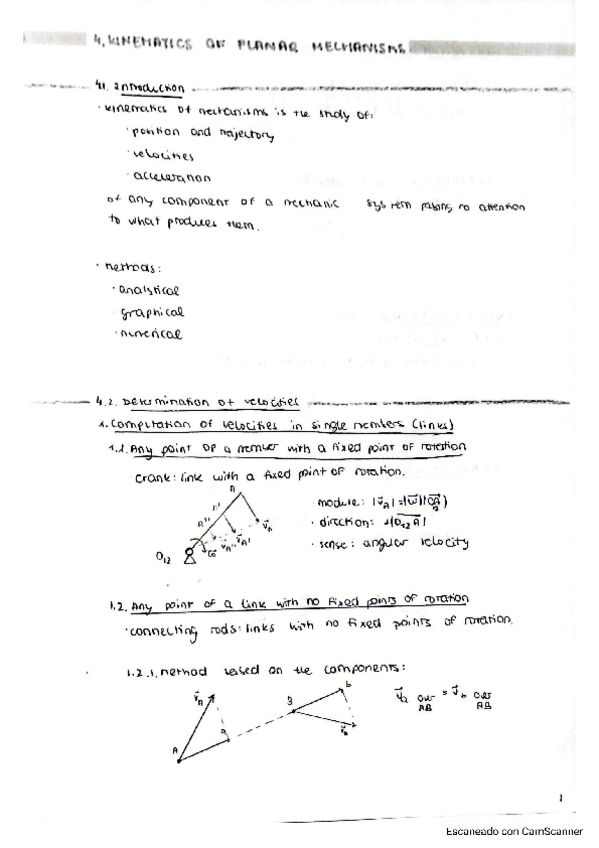 4. KINEMATICS OF PLANAR MECHANISMS
4.1. Introduction
· kinematics of mechanisms is the study of:
· position and trajectory
· velocities
· acceleration
of any component of a mechanic system paying no attention
to what produces them.
· methods:
· analytical
· graphical
· numerical
4.2. Determination of velocities
1. Computation of velocities in single members (links)
1.1. Any point of a member with a fixed point of rotation
crank: link with a fixed point of rotation.
A
A'
A''
O12
ω
v⃗A''
v⃗A'
v⃗A
module: |v⃗A| =
· direction:
· sense: angular velocity
1.2. Any point of a link with no fixed points of rotation
· connecting rods: links with no fixed points of rotation.
1.2.1. method based on the components:
v⃗A
A
a
B
b
v⃗B
over AB = over AB
1
Escaneado con CamScanner